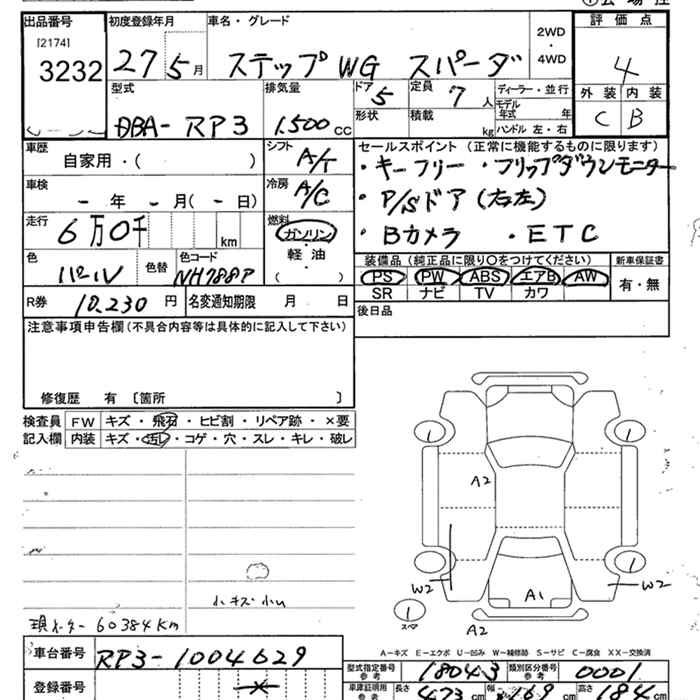 出品番号
[2174]
3232
初度登録年月
27 5月
車名・グレード
ステップWG スパーダ
2WD
・
4WD
評価点
4
外装 内装
C B
型式
DBA-RP3
排気量
1.500cc
ドア
5
定員
7人
形状
積載
kg
ディーラー・並行
モデル年式 年
ハンドル 左・右
車歴
自家用・( )
シフト
A/T
車検
- 年 - 月( - 日)
冷房
A/C
走行
6万0千 km
燃料
ガソリン
・
軽油
( )
色
パール
色替
色コード
NH788P
R券
10.230 円
名変通知期限 月 日
セールスポイント (正常に機能するものに限ります)
・キーフリー ・フリップダウンモニター
・P/Sドア (右左)
・Bカメラ ・ETC
装備品 (純正品に限り○をつけてください)
PS PW ABS エアB AW
SR ナビ TV カワ
新車保証書
有・無
後日品
注意事項申告欄(不具合内容等は具体的に記入して下さい)
修復歴 有 〔箇所 〕
検査員
記入欄
FW キズ・飛石・ヒビ割・リペア跡・×要
内装 キズ・汚レ・コゲ・穴・スレ・キレ・破レ
小キズ 小U
現メーター 60384Km
1
1
A2
1
1
W2
W2
A1
1
スペア
A2
A-キズ E-エクボ U-凹み W-補修跡 S-サビ C-腐食 XX-交換済
車台番号
RP3-1004629
登録番号
型式指定番号
参考
18043
類別区分番号
参考
0001
車庫証明用
参考
長さ 473cm 幅 169cm 高さ 184cm